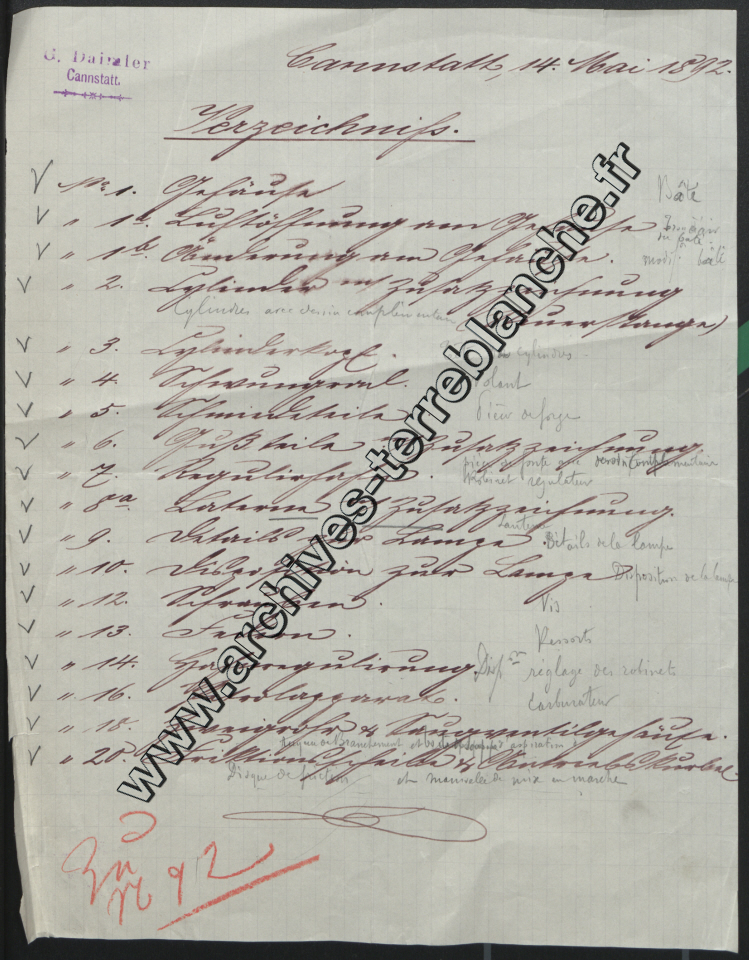 G. Daimler
Cannstatt
Cannstatt, 14. Mai 1892.
Verzeichniß.
No 1. Gehäuse Bâti
" 1a. Luftöffnung am Gehäuse
" 1b. Änderung am Gehäuse. modif. bâti
" 2. Cylinder mit Zusatzzeichnung
Cylindres avec dessin complémentaire (Steuerstange)
" 3. Cylinderkopf. cylindres.
" 4. Schwungrad. Volant
" 5. Schmiedeteile Pièces de forge
" 6. Gußteile Zusatzzeichnung
pièces de fonte avec dessin complémentaire
" 7. Regulirhahn Robinet régulateur
" 8a. Laterne Zusatzzeichnung.
Lanterne
" 9. Details Lampe. Détails de la lampe
" 10. Disposition zur Lampe Disposition de la lampe
" 12. Schrauben. Vis
" 13. Federn. Ressorts
" 14. Hahnregulirung. Dispon réglage des robinets
" 16. Petrolapparat. Carburateur
" 18. Zweigrohr & Saugventilgehäuse.
Tuyau de Branchement et aspiration
" 20. Friktionsscheibe & Antriebskurbel.
Disque de friction et manivelle de mise en marche
Zu
No 92
www.archives-terreblanche.fr